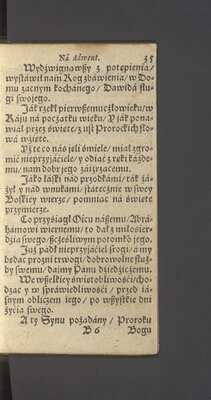 Ná Adwent. 35
Wydźwignąwszy z potępienia/
wystáwił nám Rog zbáwienia/ w Do-
mu zacnym kochánego/ Dawidá słu-
gi swojego.
Ják rzekł pierwszemu człowieku/ w
Ráju ná początku wieku/ Y ják pona-
wiał przez święte/ z ust Prorockich sło-
wá wzięte.
Yż te co nas jeli śmiele/ miał zgro-
mić nieprzyjáciele/ y odiąć z ręki káżde-
mu/ nam dobrego zajrzącemu.
Jáko łáski nád przodkámi/ ták zá-
żył y nád wnukámi/ státecznie w swey
Boskiey wierze/ pomniąc ná święte
przymierze.
Co przysiągł Oicu nászemu/ Abrá-
hamowi wiernemu/ to dał z miłosier-
dzia swego/ szczęśliwym potomkō jego.
Już pádł nieprzyjaciel srogi/ á my
będąc prozni trwogi/ dobrowolnie służ-
by swemu/ dajmy Pánu dziedzicznemu.
We wszelkiey świętobliwości/ cho-
dząc y w spráwiedliwości/ przed já-
snym obliczem jego/ po wszystkie dni
życia swego.
A ty Synu pożądány/ Proroku
B 6 Bogu